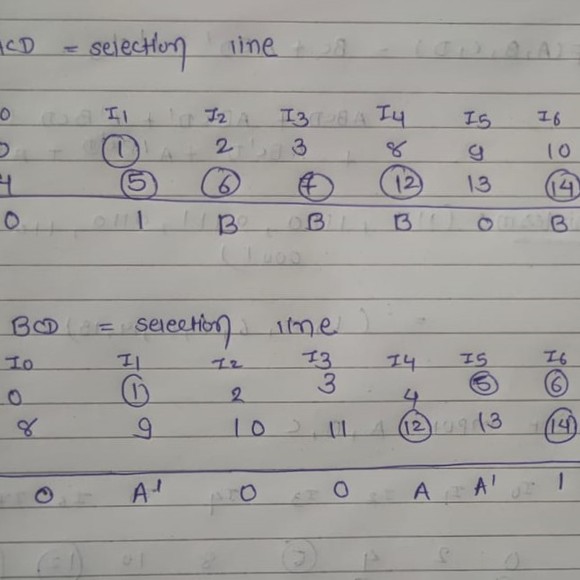 ACD = selection line
I0 I1 I2 I3 I4 I5 I6
0 1 2 3 8 9 10
4 5 6 7 12 13 14
0 1 B B B 0 B
BCD = selection line
I0 I1 I2 I3 I4 I5 I6
0 1 2 3 4 5 6
8 9 10 11 12 13 14
0 A' 0 0 A A' 1